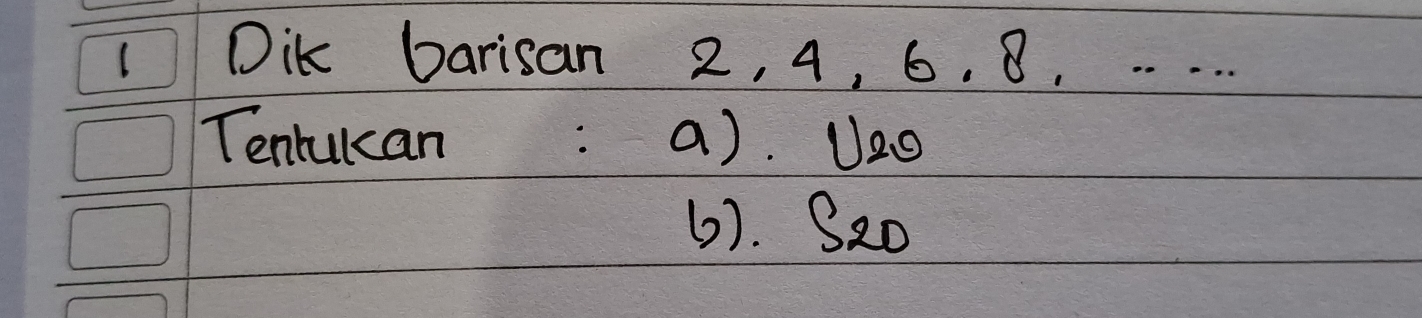 1 Dik barisan 2, 4, 6, 8, .. ...
Tentukan : a). U20
b). S20